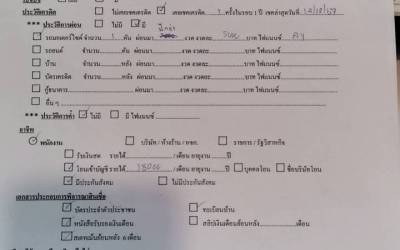 ประวัติเครดิต ไม่เคยขอเครดิต เคยขอเครดิต 1 ครั้งในรอบ 1 ปี เขตล่าสุดวันที่
*** ประวัติการผ่อน ไม่มี มี
รถมอเตอร์ไซค์ จำนวน 1 คัน ผ่อนมา งวด งวดละ บาท ไฟแนนซ์
รถยนต์ จำนวน คัน ผ่อนมา งวด งวดละ บาท ไฟแนนซ์
บ้าน จำนวน หลัง ผ่อนมา งวด งวดละ บาท ไฟแนนซ์
บัตรเครดิต จำนวน ผ่อนมา งวด งวดละ บาท ไฟแนนซ์
กู้ธนาคาร ผ่อนมา งวด งวดละ บาท ไฟแนนซ์
อื่น ๆ
*** ประวัติการค้ำ ไม่มี มี ไฟแนนซ์
อาชีพ
พนักงาน บริษัท / ห้างร้าน / หจก. ราชการ / รัฐวิสาหกิจ
รับเงินสด รายได้ /เดือน อายุงาน ปี
โอนเข้าบัญชี รายได้ 18000 /เดือน อายุงาน ปี บุคคลโอน ชื่อบริษัทโอน
มีประกันสังคม ไม่มีประกันสังคม
เอกสารประกอบการพิจารณาสินเชื่อ
บัตรประจำตัวประชาชน ทะเบียนบ้าน
หนังสือรับรองเงินเดือน สลิปเงินเดือนย้อนหลัง เดือน
สเตทเม้นย้อนหลัง 6 เดือน